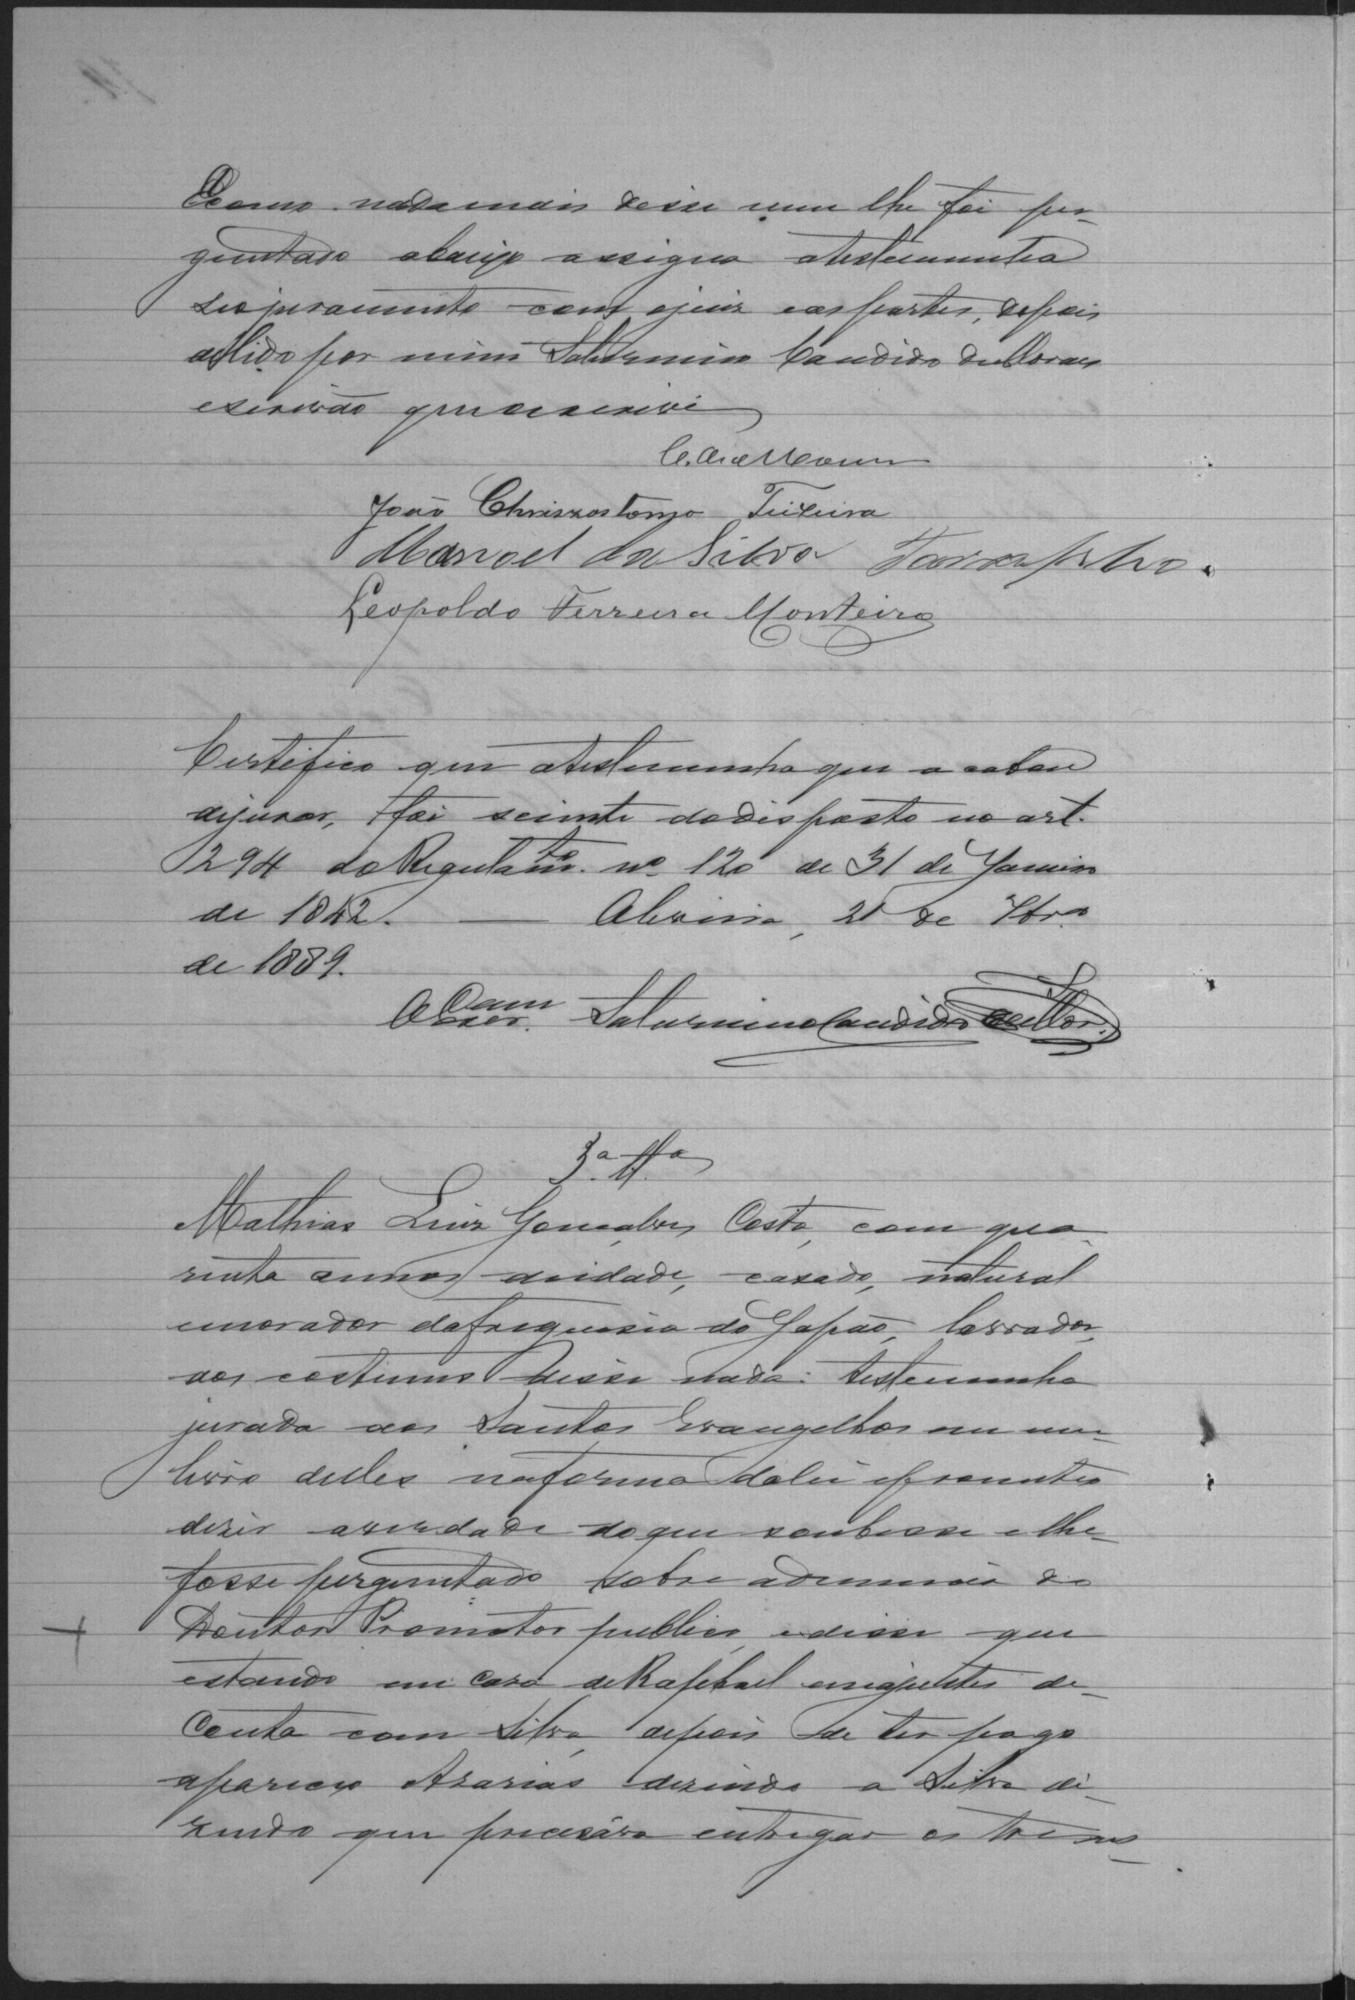 E como nada mais disse nem lhe foi per-
guntado abaixo assigna a testemunha
seo juramento com o juiz e as partes, depois
de lido por mim Saturnino Candido de Moraes
escrivão que o escrevi
João Chriszostomo Teixeira
Manoel da Silva
Leopoldo Ferreira Monteiro
Certifico que a testemunha que acaba
de jurar, foi sciente do disposto no art.
294 do Regulamto. nº 120 de 31 de Janeiro
de 1842. — 21 de
de 1889.
O Escr. Saturnino Candido de Mor.
3.ª Tª
Mathias Luiz Gonçalves Costa, com qua-
renta annos de idade, casado, natural
e morador da freguesia do Japão, lavrador,
aos costumes disse nada: testemunha
jurada aos Santos Evangelhos em um
livro delles na forma da lei e prometteo
dizer a verdade do que soubesse e lhe
fosse perguntado sobre a denuncia do
Doutor Promotor publico, e disse que
estando em casa de Raphael em ajustes de
Conta com Silva, depois de ter pago
apareceo Azarias dizendo a Silva di-
zendo que precisava entregar os trens